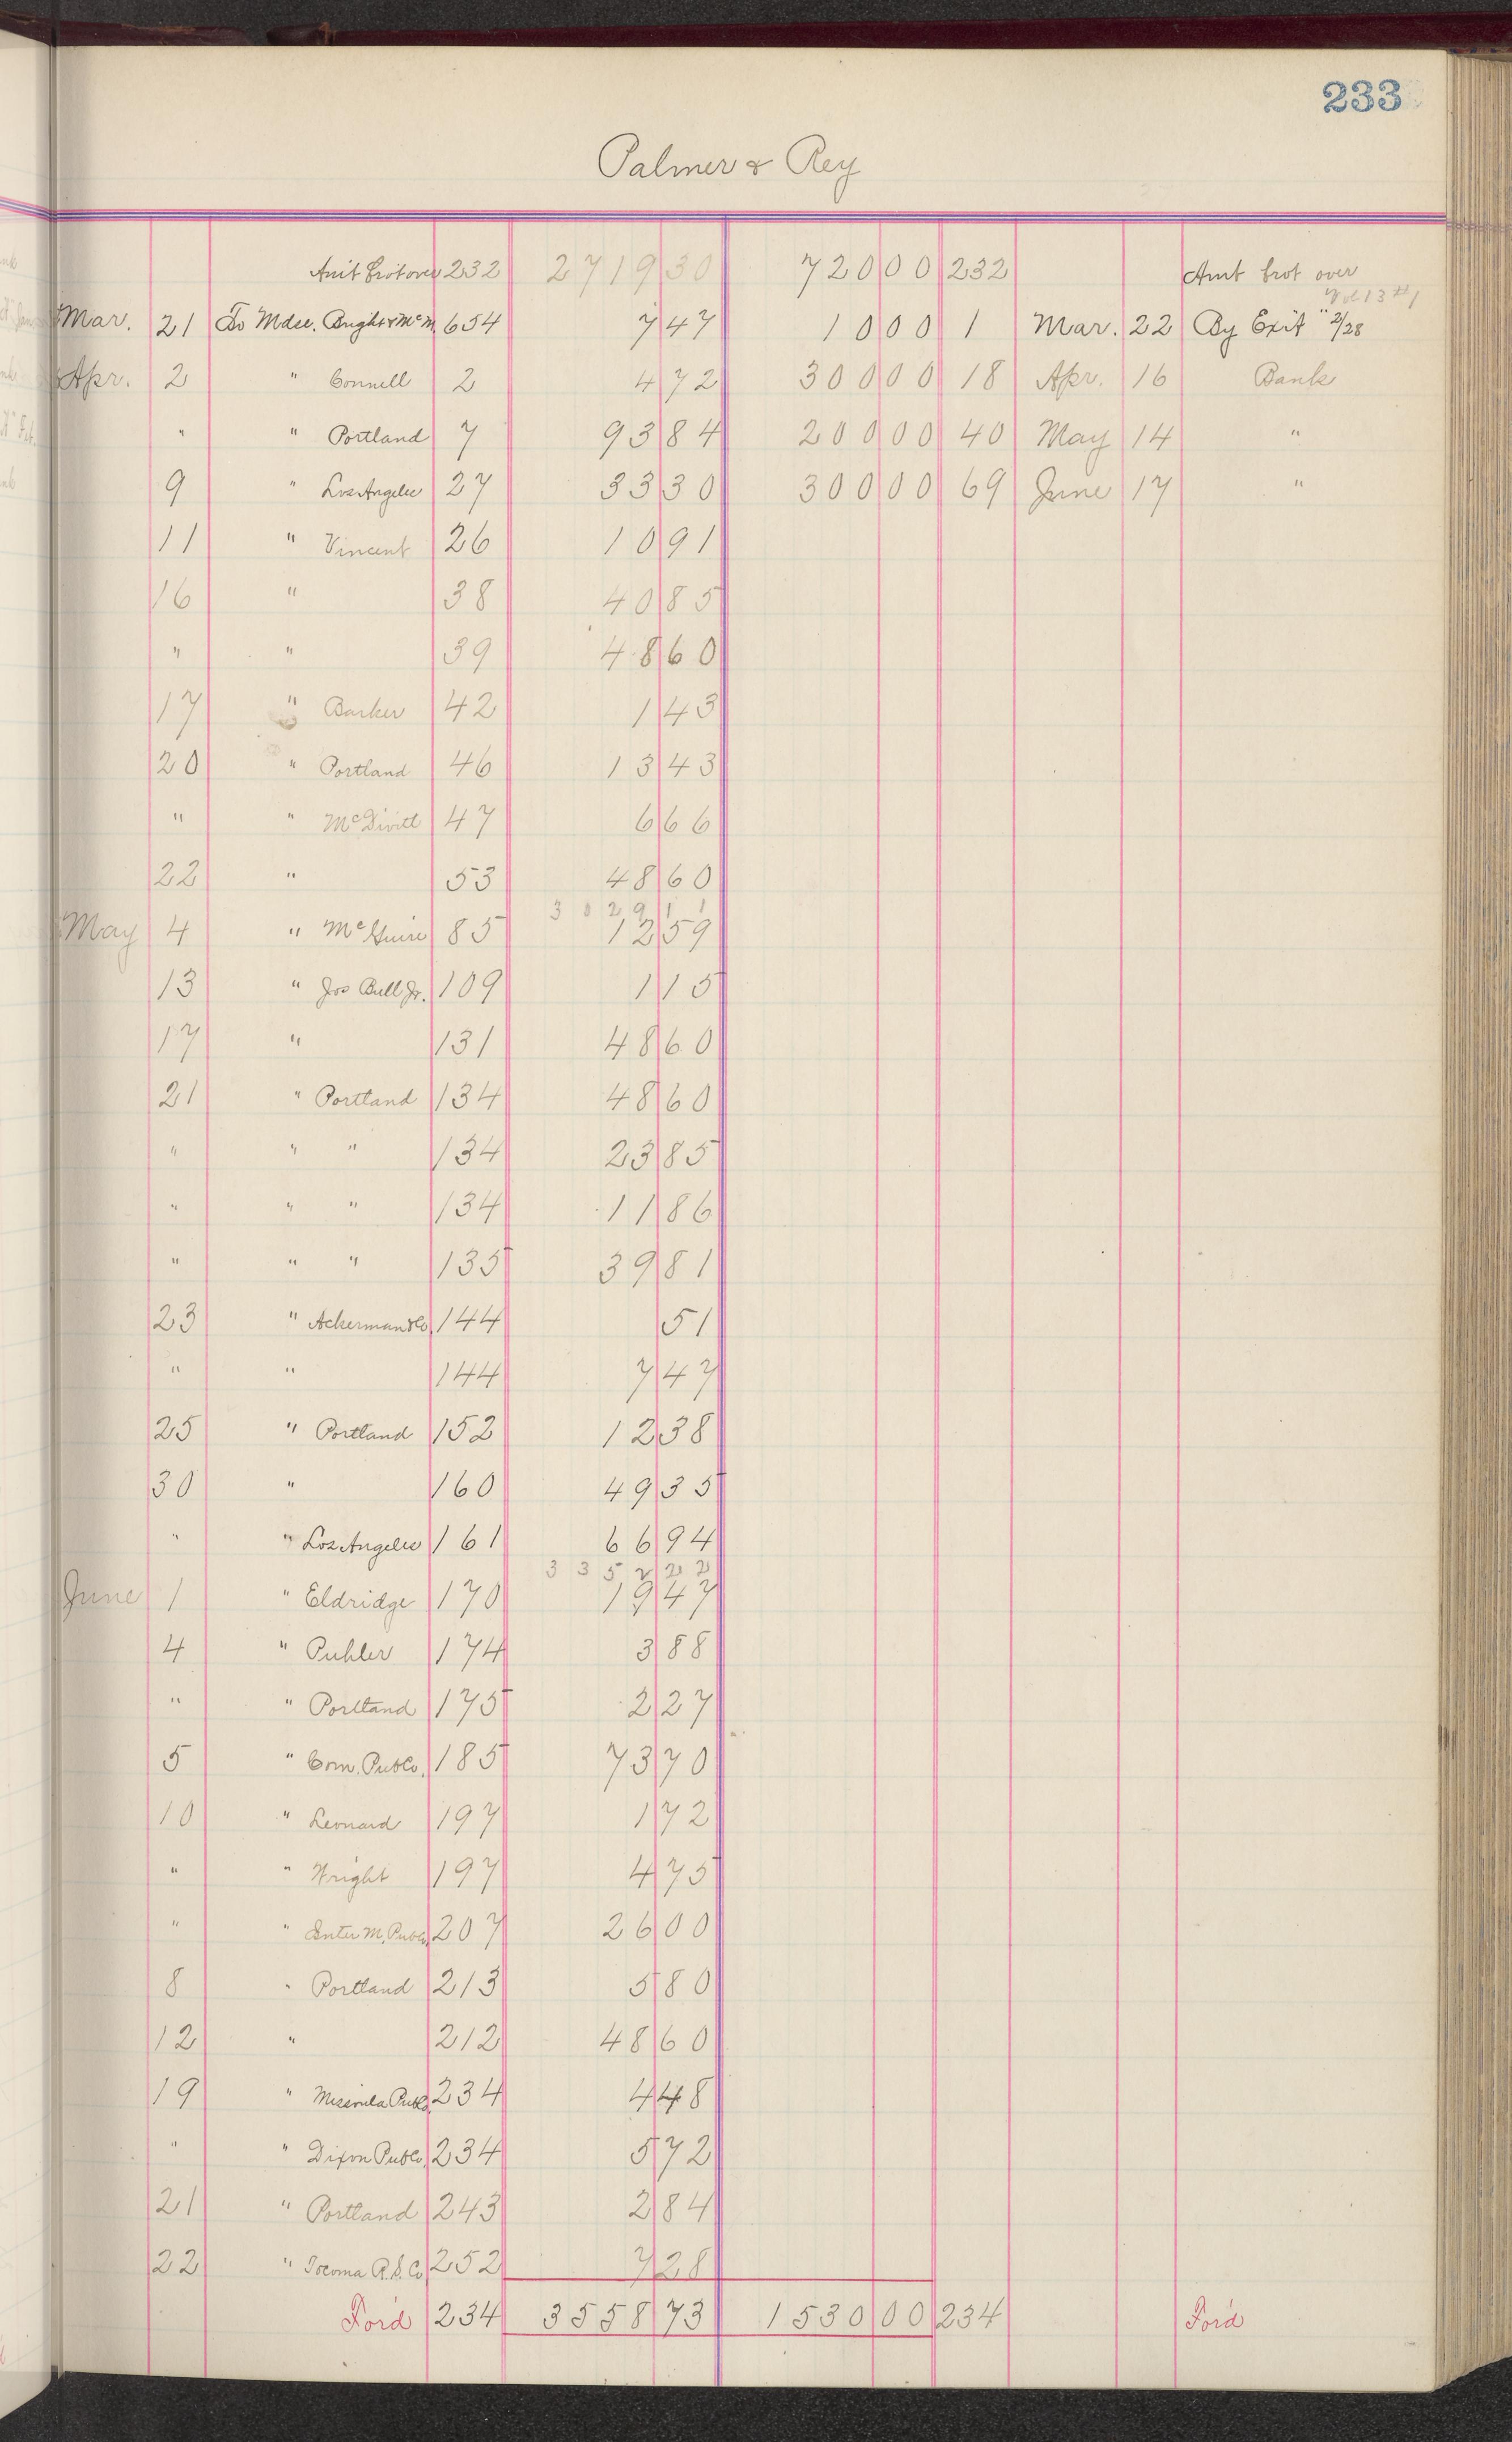 233
Palmer & Rey
Amt brot over 232 2719 30 720 00 232 Amt brot over
Vol 13 #1
Mar. 21 To Mdse. Bright & McM. 654 7 47 10 00 1 Mar. 22 By Exit " 2/28
Apr. 2 " Connell 2 4 72 300 00 18 Apr. 16 Bank
" " Portland 7 93 84 200 00 40 May 14 "
9 " Los Angeles 27 33 30 300 00 69 June 17 "
11 " Vincent 26 10 91
16 " 38 40 85
" " 39 48 60
17 " Barker 42 1 43
20 " Portland 46 13 43
" " McDivitt 47 6 66
22 " 53 48 60
3029 11
May 4 " McGuire 85 12 59
13 " Jos Bull Jr. 109 1 15
17 " 131 48 60
21 " Portland 134 48 60
" " " 134 23 85
" " " 134 11 86
" " " 135 39 81
23 " Ackerman & Co 144 51
" " 144 7 47
25 " Portland 152 12 38
30 " 160 49 35
" " Los Angeles 161 66 94
3352 22
June 1 " Eldridge 170 19 47
4 " Puhler 174 3 88
" " Portland 175 2 27
5 " Com. Pub Co. 185 73 70
10 " Leonard 197 1 72
" " Wright 197 4 75
" " Inter M. Pub Co. 207 26 00
8 " Portland 213 5 80
12 " 212 48 60
19 " Missoula Pub Co. 234 4 48
" " Dixon Pub Co. 234 5 72
21 " Portland 243 2 84
22 " Tocoma P. S. Co 252 7 28
Ford 234 3558 73 1530 00 234 Ford